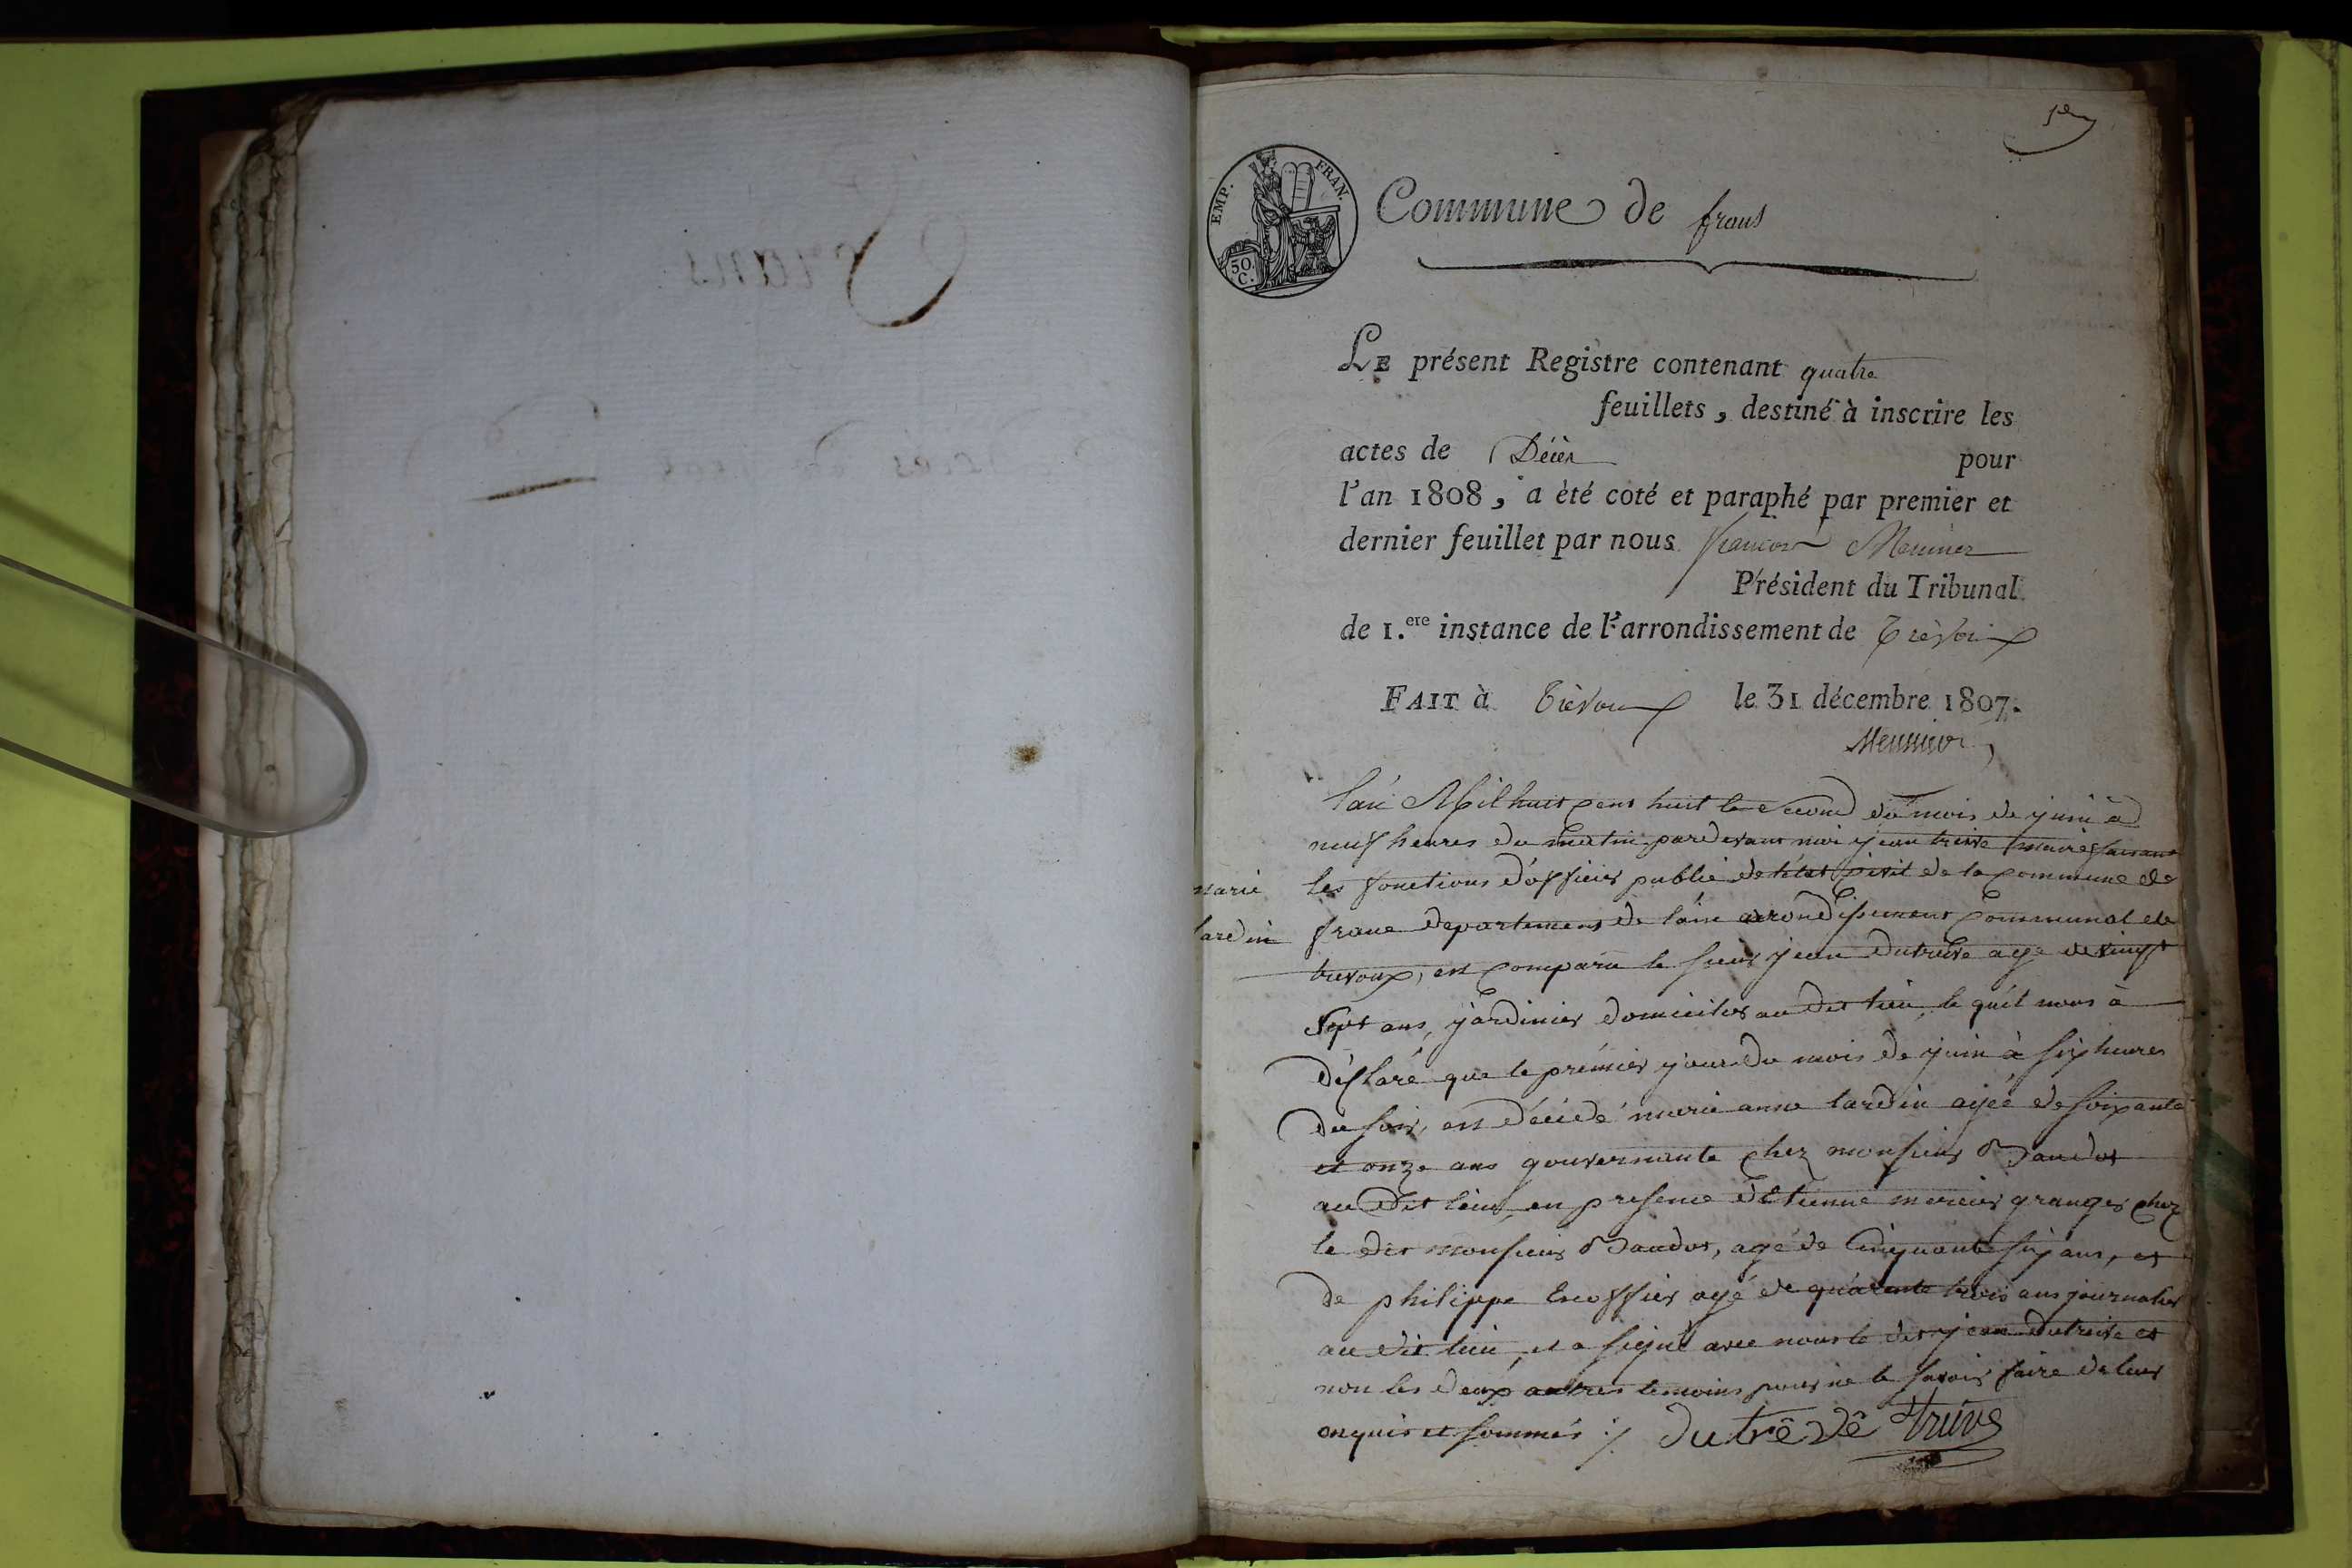 1er
EMP. FRAN.
50
C.
Commune de frans
LE présent Registre contenant quatre
feuillets, destiné à inscrire les
actes de Décès pour
l'an 1808, a été coté et paraphé par premier et
dernier feuillet par nous francois Meunier
Président du Tribunal
de 1.ere instance de l'arrondissement de Trèvoux
FAIT à Trèvoux le 31 décembre 1807.
Meunier
lan Mil huit cent huit le second du mois de juin à
neuf heures du matin pardevant moi jean treive maire faisant
marie
les fonctions d'officier public de l'état civil de la commune de
lardin
frans departement de l'ain arrondissement Communal de
trevoux, est comparu le sieur jean dutreive agé de vingt
sept ans, jardinier domicilier au dit lieu, le quél nous à
déclaré que le prémier jour du mois de juin à six heures
du soir, est décédé marie anne lardin agéé de soixante
et onze ans gouvernante chez monsieur Baudot
au dit lieu, en presence d'etienne mercier granger chez
le dit monsieur Baudot, agé de cinquante six ans, et
de philippe Escoffier agé de quarente trois ans journalier
au dit lieu, et a signé avec nous le dit jean dutreive et
non les deux autres temoins pour ne le savoir faire de leur
enquis et sommés ;/ dutrêvê treive